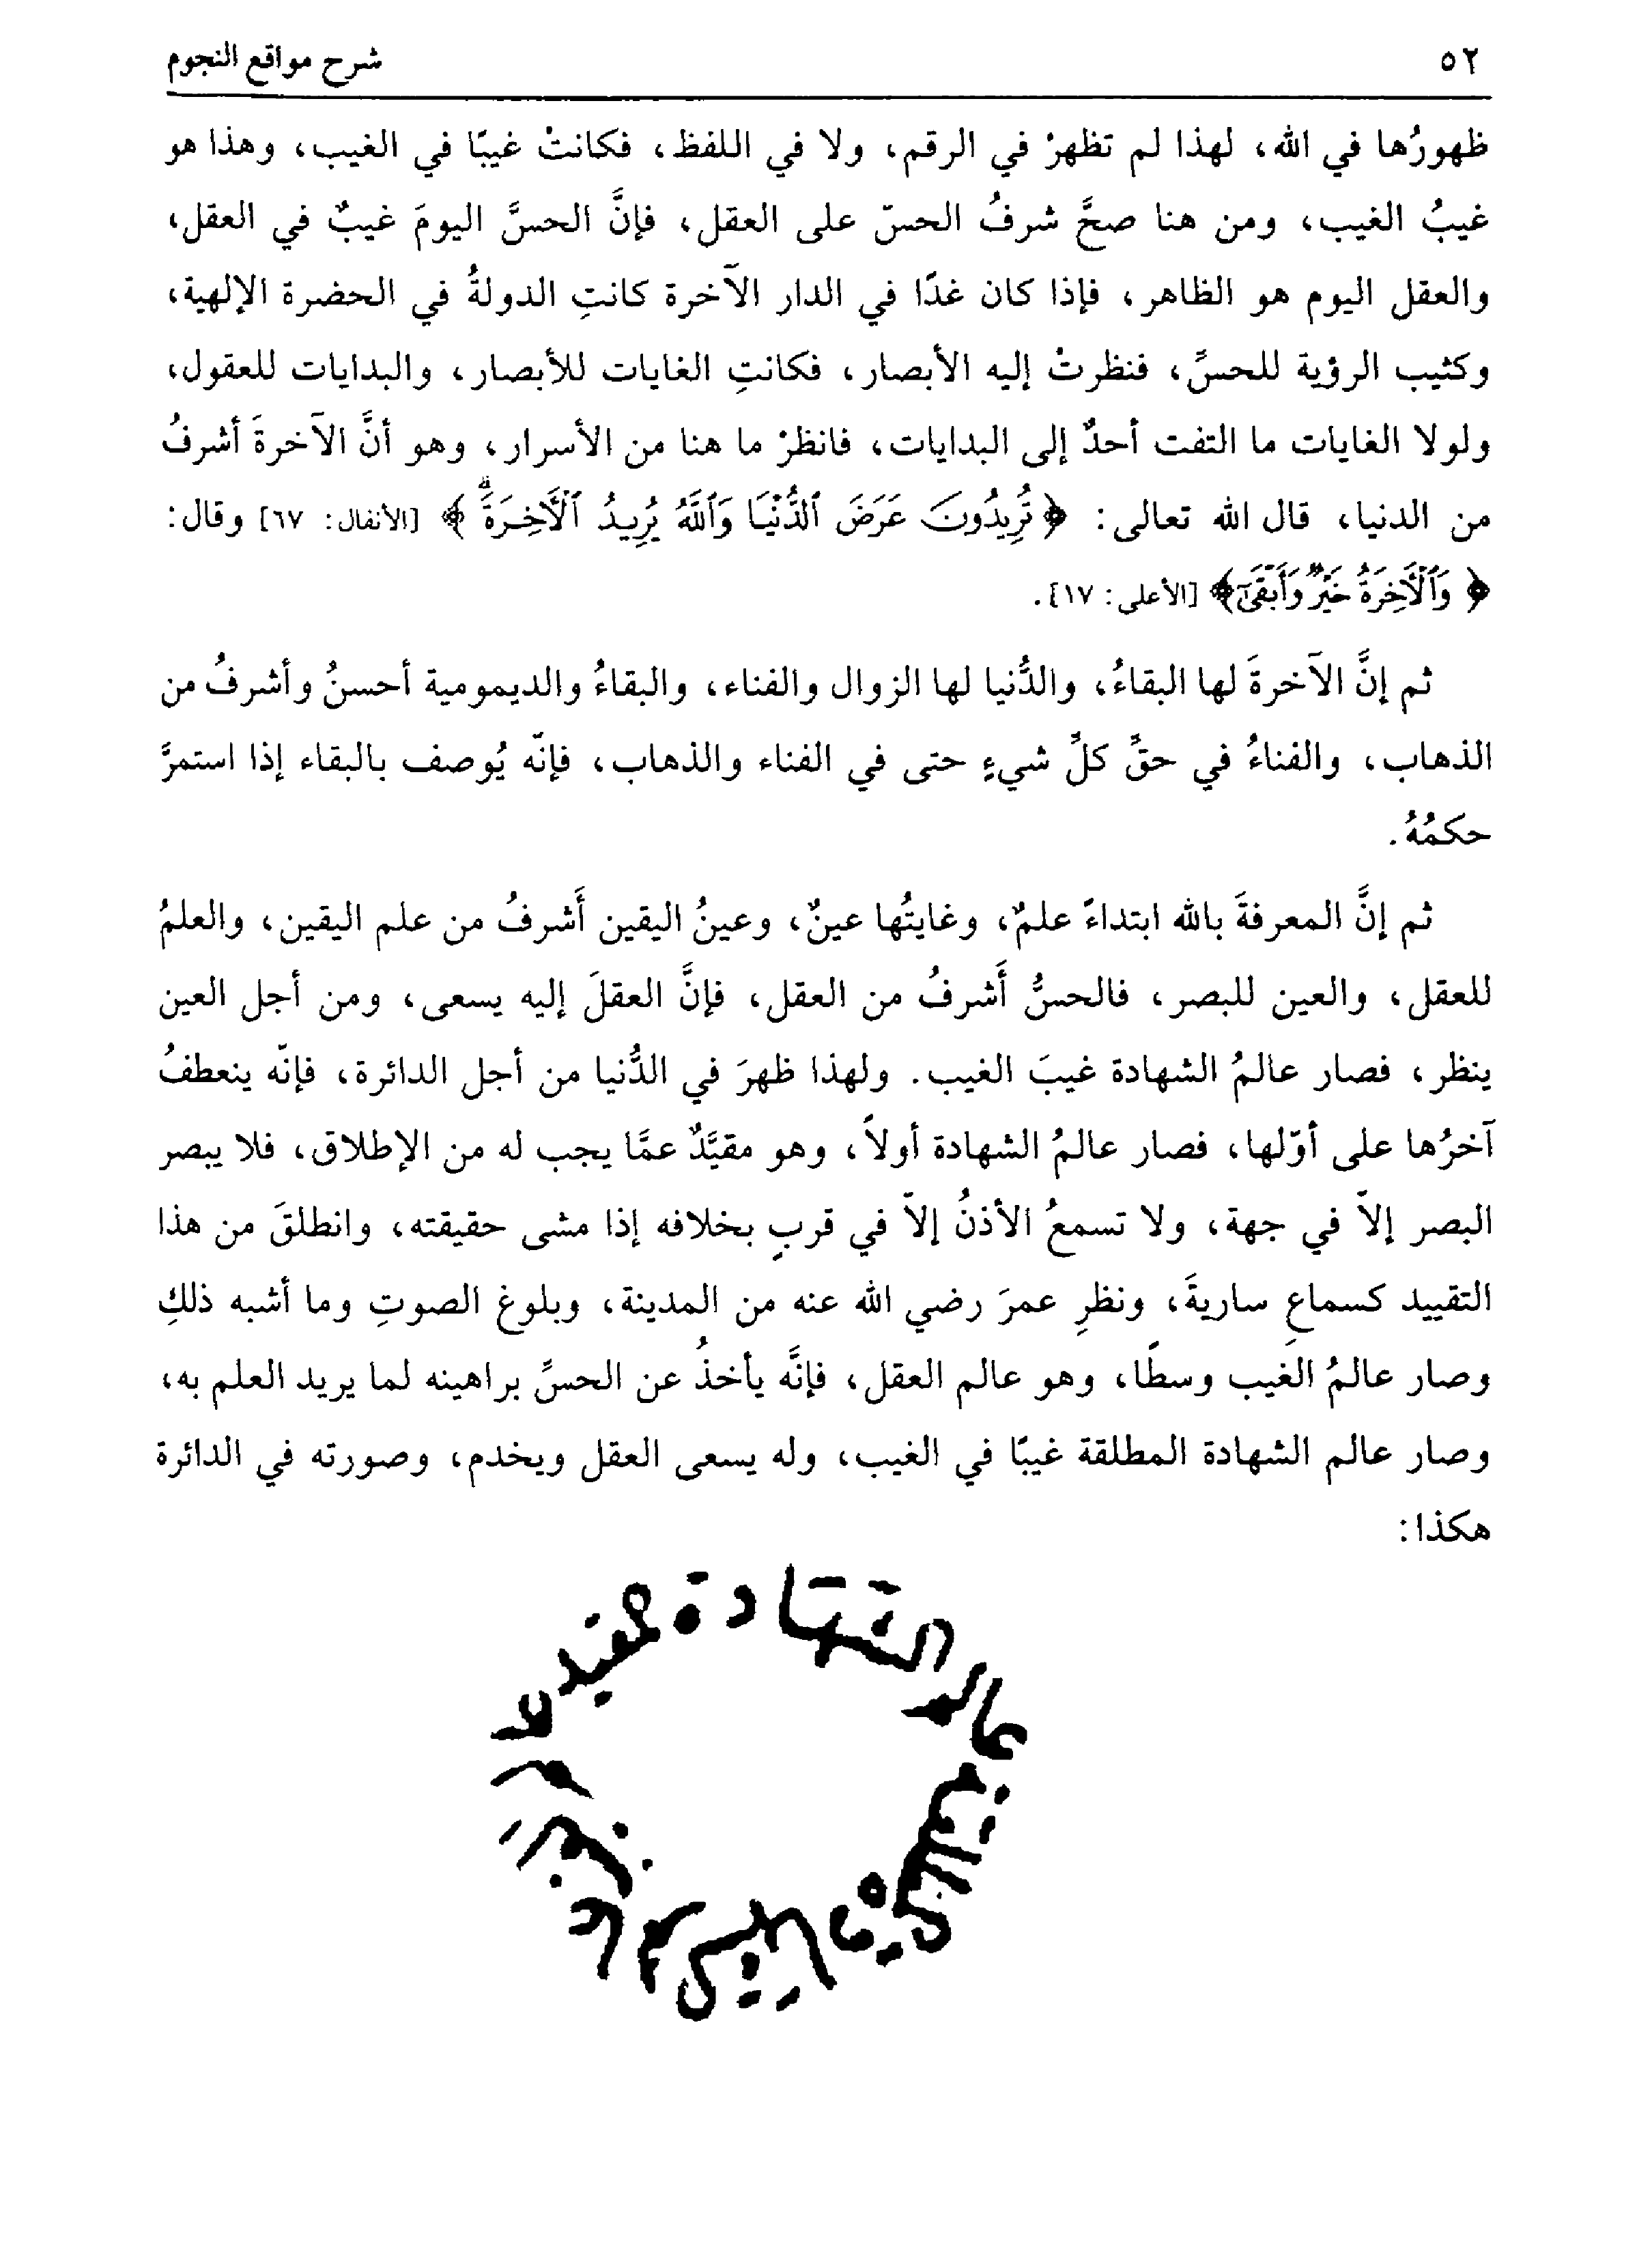 ٥٢ شرح مواقع النجوم
ظهورُها في الله، لهذا لم تظهرْ في الرقم، ولا في اللفظ، فكانتْ غيبًا في الغيب، وهذا هو
غيبُ الغيب، ومن هنا صحَّ شرفُ الحسّ على العقل، فإنَّ الحسَّ اليومَ غيبٌ في العقل،
والعقل اليوم هو الظاهر، فإذا كان غدًا في الدار الآخرة كانتِ الدولةُ في الحضرة الإلهية،
وكثيب الرؤية للحسِّ، فنظرتْ إليه الأبصار، فكانتِ الغايات للأبصار، والبدايات للعقول،
ولولا الغايات ما التفت أحدٌ إلى البدايات، فانظرْ ما هنا من الأسرار، وهو أنَّ الآخرةَ أشرفُ
من الدنيا، قال الله تعالى: ﴿ تُرِيدُونَ عَرَضَ ٱلدُّنْيَا وَٱللَّهُ يُرِيدُ ٱلْآخِرَةَۗ ﴾ [الأنفال: ٦٧] وقال:
﴿ وَٱلْآخِرَةُ خَيْرٌ وَأَبْقَىٰٓ﴾ [الأعلى: ١٧].
ثم إنَّ الآخرةَ لها البقاءُ، والدُّنيا لها الزوال والفناء، والبقاءُ والديمومية أحسنُ وأشرفُ من
الذهاب، والفناءُ في حقِّ كلِّ شيءٍ حتى في الفناء والذهاب، فإنّه يُوصف بالبقاء إذا استمرَّ
حكمُهُ.
ثم إنَّ المعرفةَ بالله ابتداءً علمٌ، وغايتُها عينٌ، وعينُ اليقين أَشرفُ من علم اليقين، والعلمُ
للعقل، والعين للبصر، فالحسُّ أَشرفُ من العقل، فإنَّ العقلَ إليه يسعى، ومن أجل العين
ينظر، فصار عالمُ الشهادة غيبَ الغيب. ولهذا ظهرَ في الدُّنيا من أجل الدائرة، فإنّه ينعطفُ
آخرُها على أوّلها، فصار عالمُ الشهادة أولاً، وهو مقيَّدٌ عمَّا يجب له من الإطلاق، فلا يبصر
البصر إلاّ في جهة، ولا تسمعُ الأذنُ إلاّ في قربٍ بخلافه إذا مشى حقيقته، وانطلقَ من هذا
التقييد كسماعِ ساريةَ، ونظرِ عمرَ رضي الله عنه من المدينة، وبلوغ الصوتِ وما أشبه ذلكِ
وصار عالمُ الغيب وسطًا، وهو عالم العقل، فإنَّه يأخذُ عن الحسِّ براهينه لما يريد العلم به،
وصار عالم الشهادة المطلقة غيبًا في الغيب، وله يسعى العقل ويخدم، وصورته في الدائرة
هكذا:
عالم الشهادة مقيد